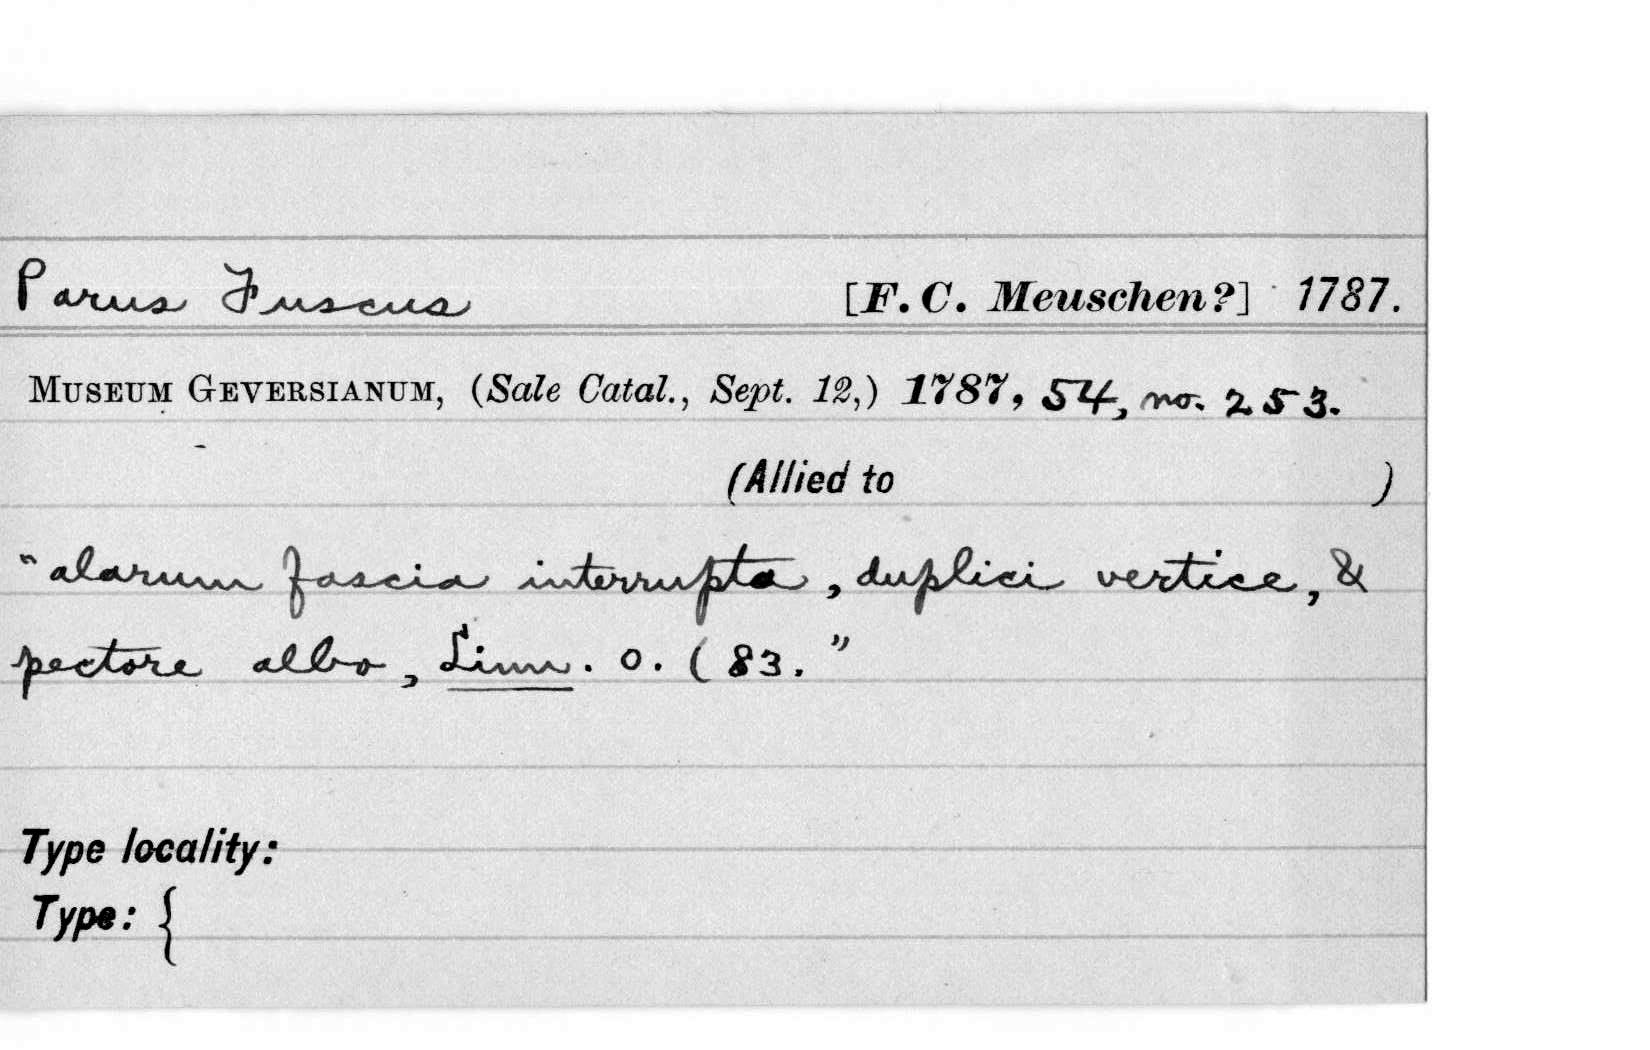 Parus Fuscus [F. C. Meuschen?] 1787.
MUSEUM GEVERSIANUM, (Sale Catal., Sept. 12,) 1787, 54, no. 253.
(Allied to )
"alarum fascia interrupta, duplici vertice, &
pectore albo, Linn. o. ( 83."
Type locality:
Type: {